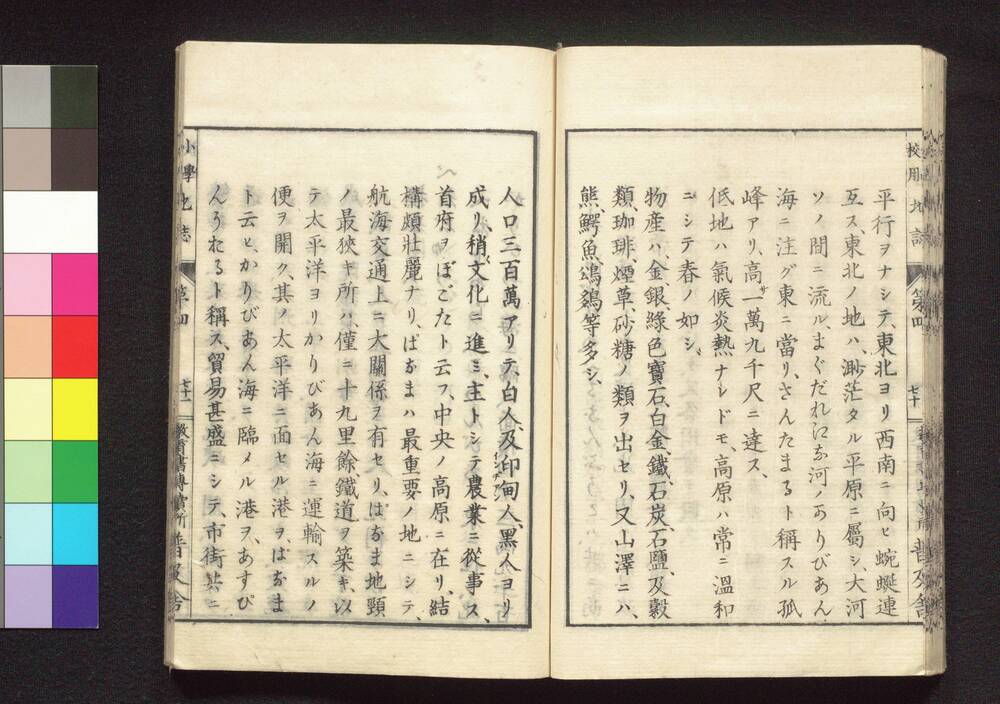 校用地誌
第四
七十
普及舎
平行ヲナシテ、東北ヨリ西南ニ向ヒ蜿蜒連
互ス、東北ノ地ハ、渺茫タル平原ニ屬シ、大河
ソノ間ニ流ル、まぐだれにな河ノありびあん
海ニ注グ東ニ當リ、さんたまるト稱スル孤
峰アリ、高サ一萬九千尺ニ達ス、
低地ハ氣候炎熱ナレドモ、高原ハ常ニ溫和
ニシテ春ノ如シ、
物産ハ、金銀綠色寶石、白金、鐵、石炭、石鹽、及穀
類、珈琲、煙草、砂糖ノ類ヲ出セリ、又山澤ニハ、
熊、鰐魚、鴆鷄等多シ、
人口三百萬アリテ、白人、及印甸人、黑人ヨリ
成リ、稍文化ニ進ミ、主トシテ農業ニ從事ス、
首府ヲぼごたト云フ、中央ノ高原ニ在リ、結
構頗壯麗ナリ、ぱなまハ最重要ノ地ニシテ、
航海交通上ニ大關係ヲ有セリ、ぱなま地頸
ノ最狹キ所ハ、僅ニ十九里餘鐵道ヲ築キ、以
テ太平洋ヨリかりびあん海ニ運輸スルノ
便ヲ開ク、其ノ太平洋ニ面セル港ヲ、ぱなま
ト云ヒ、かりびあん海ニ臨メル港ヲ、あすぴ
んうおるト稱ス、貿易甚盛ニシテ、市街共ニ
小學地誌
第四
七十一
教育書專賣所
普及舎